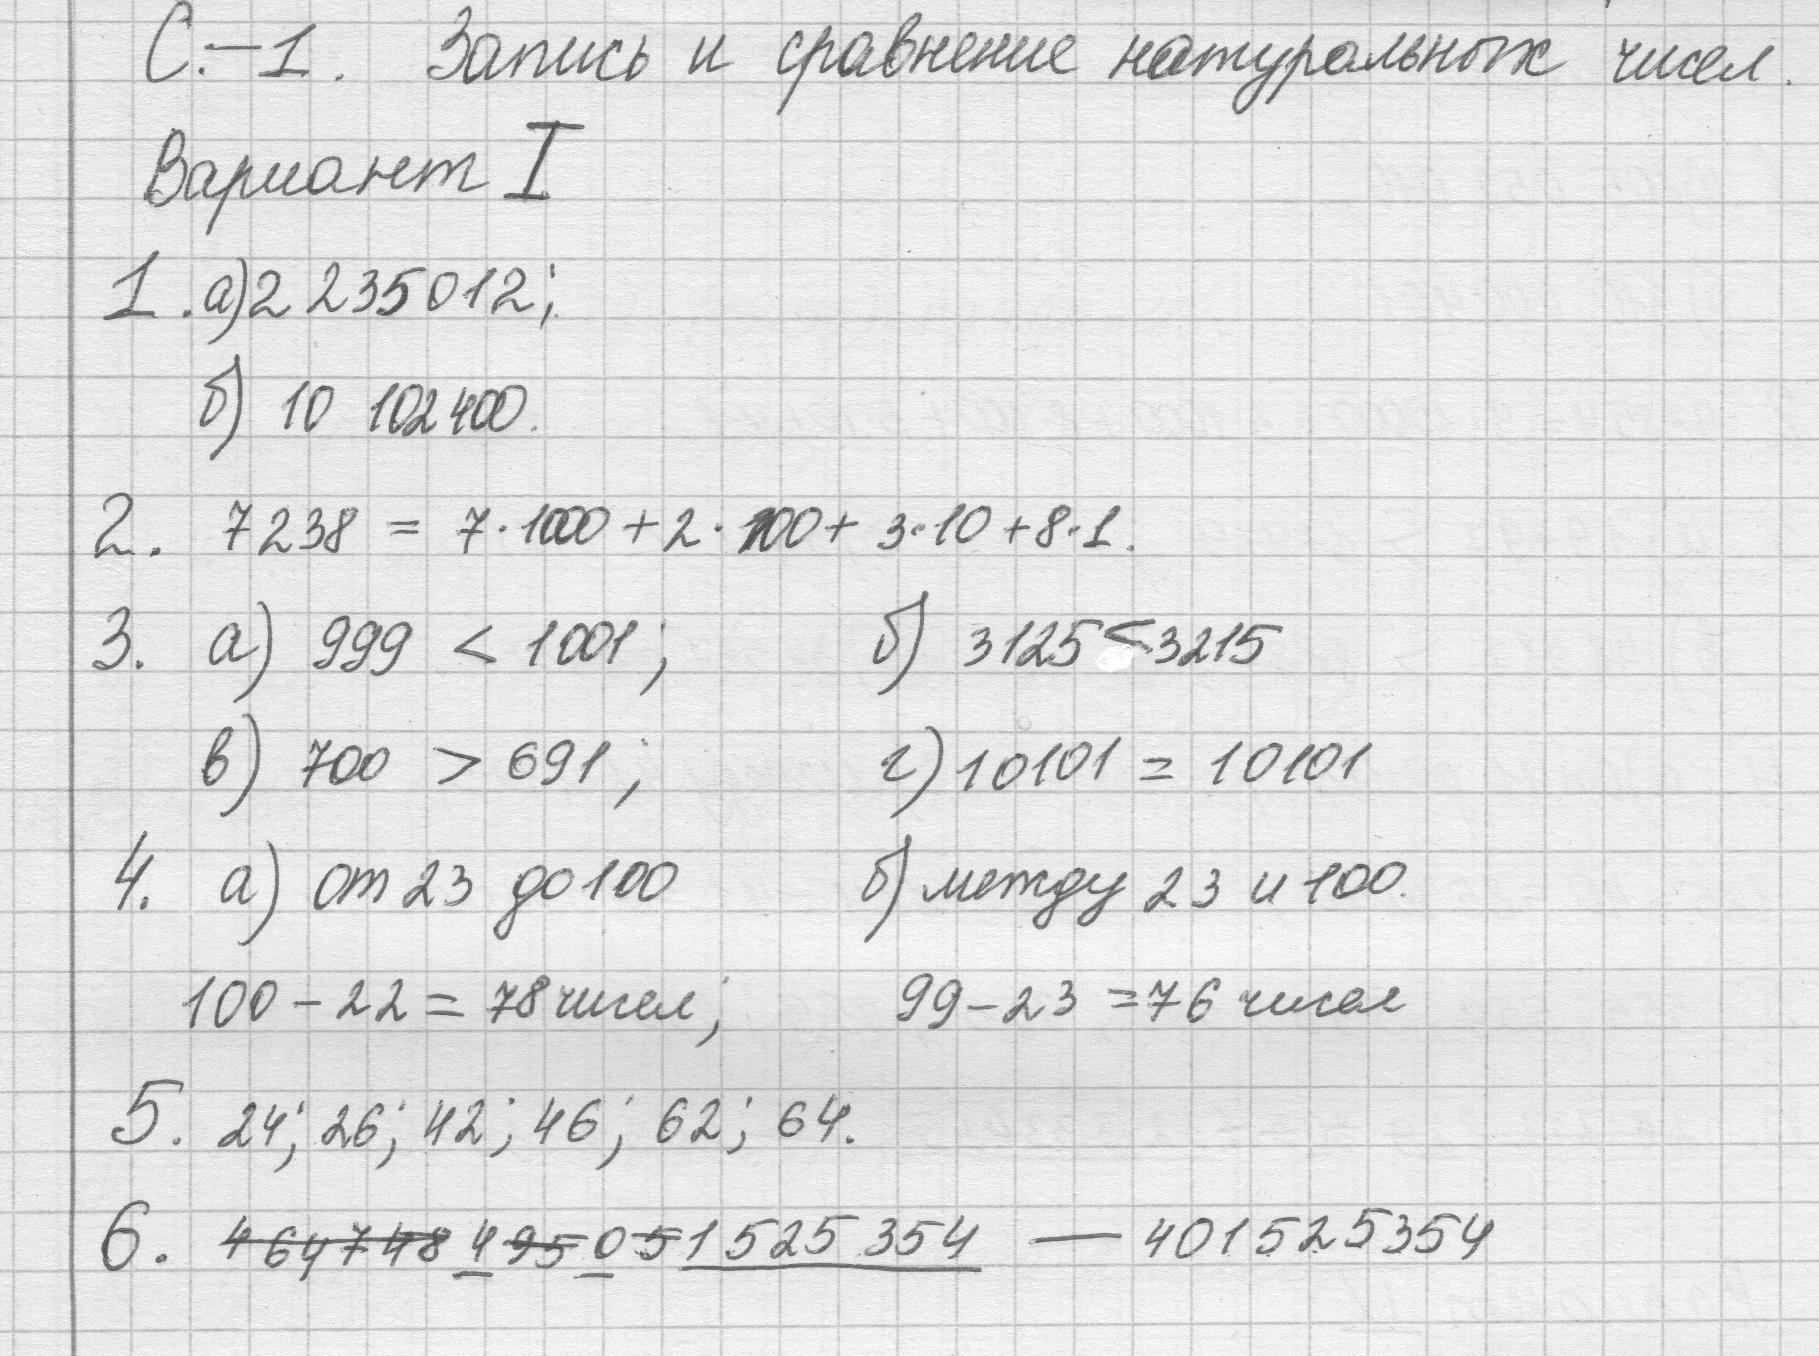 С.–1. Запись и сравнение натуральных чисел.
Вариант I
1. а) 2 235012;
б) 10 102400.
2. 7238 = 7·1000 + 2·100 + 3·10 + 8·1.
3. а) 999 < 1001; б) 3125 < 3215
в) 700 > 691; г) 10101 = 10101
4. а) от 23 до 100 б) между 23 и 100.
100 – 22 = 78 чисел; 99 – 23 = 76 чисел
5. 24; 26; 42; 46; 62; 64.
6. 464748495051525354 — 401525354